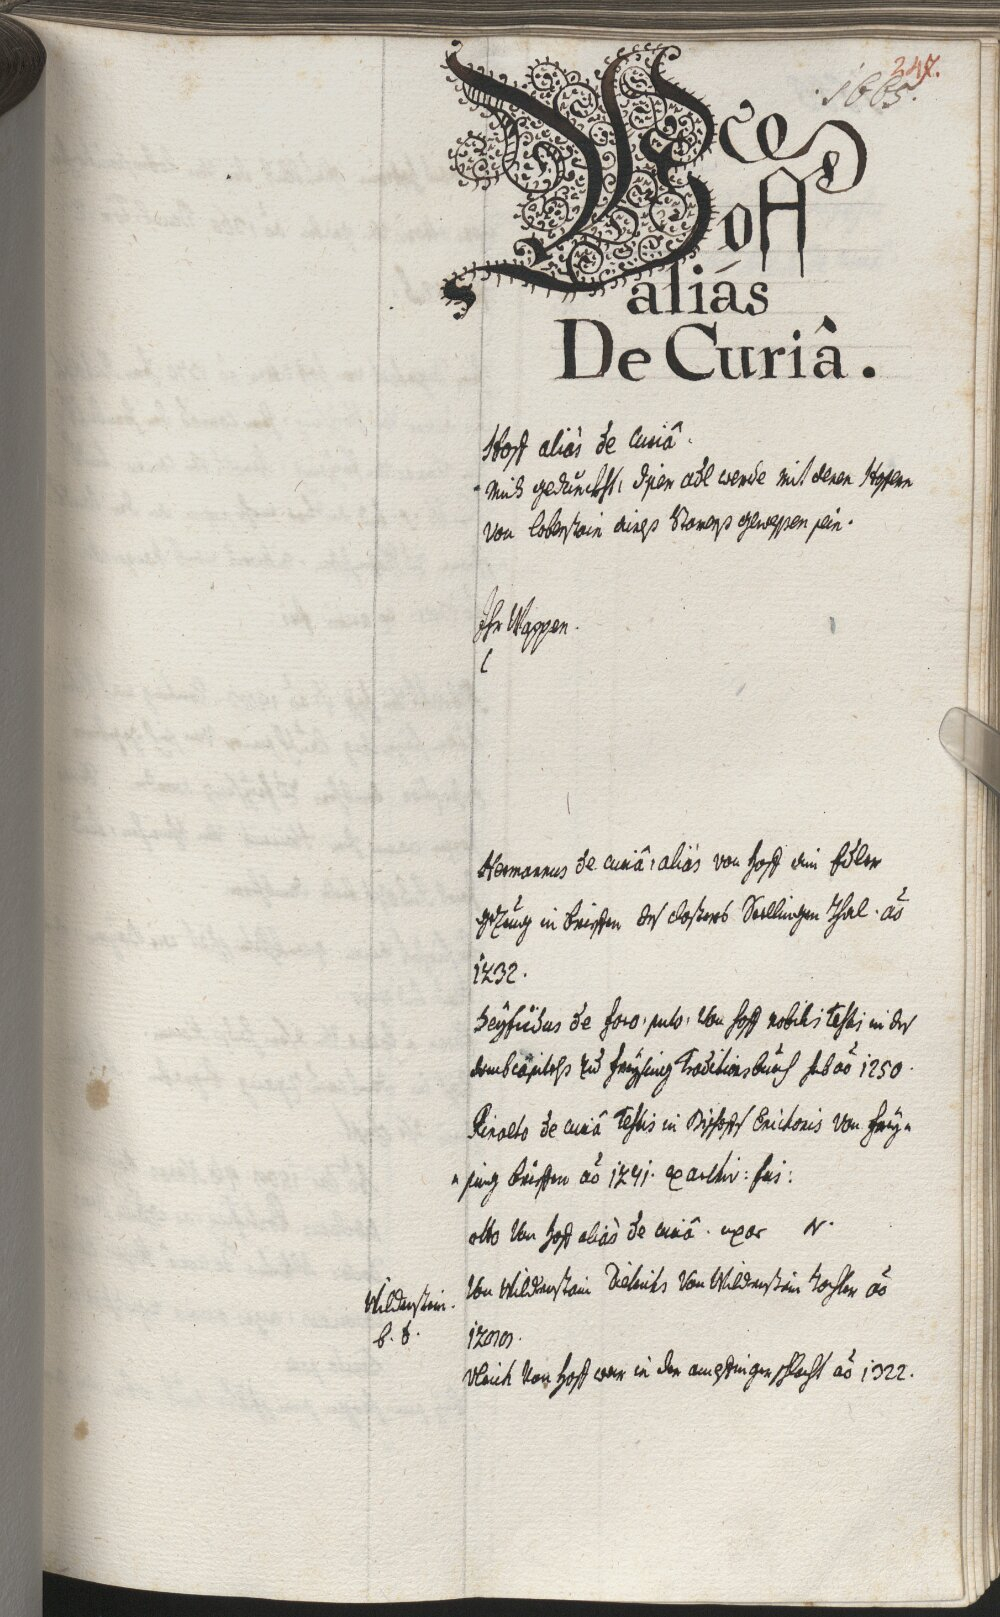 247.
1665.
Vo
Hoff
aliàs
De Curiâ.
Hoff aliàs de Curiâ.
Mich geduncket, dieser adl werde mit denen Hofern
von Lobenstain aines Stamens gewessen sein.
Ihr Wappen.
Hermannus de curiâ, aliàs von Hoff ein Edler
gezeug in brieffen des closters Seellingen thal. aō
1232.
Seyfridus de foro, puto, Von Hoff nobilis testis in des
dombcapitels zu freysing Traditions buech sub aō 1250.
de curiâ testis in Bischoffs Von frey=
=sing brieffen aō 1241. ex archiv: fris:
otto Von Hoff aliàs de curiâ. uxor N.
Wildenstain.
b. d.
Von Wildenstain Dietrichs Von Wildenstain tochter aō
Ulrich Von Hoff war in der ampfinger schlacht aō 1322.